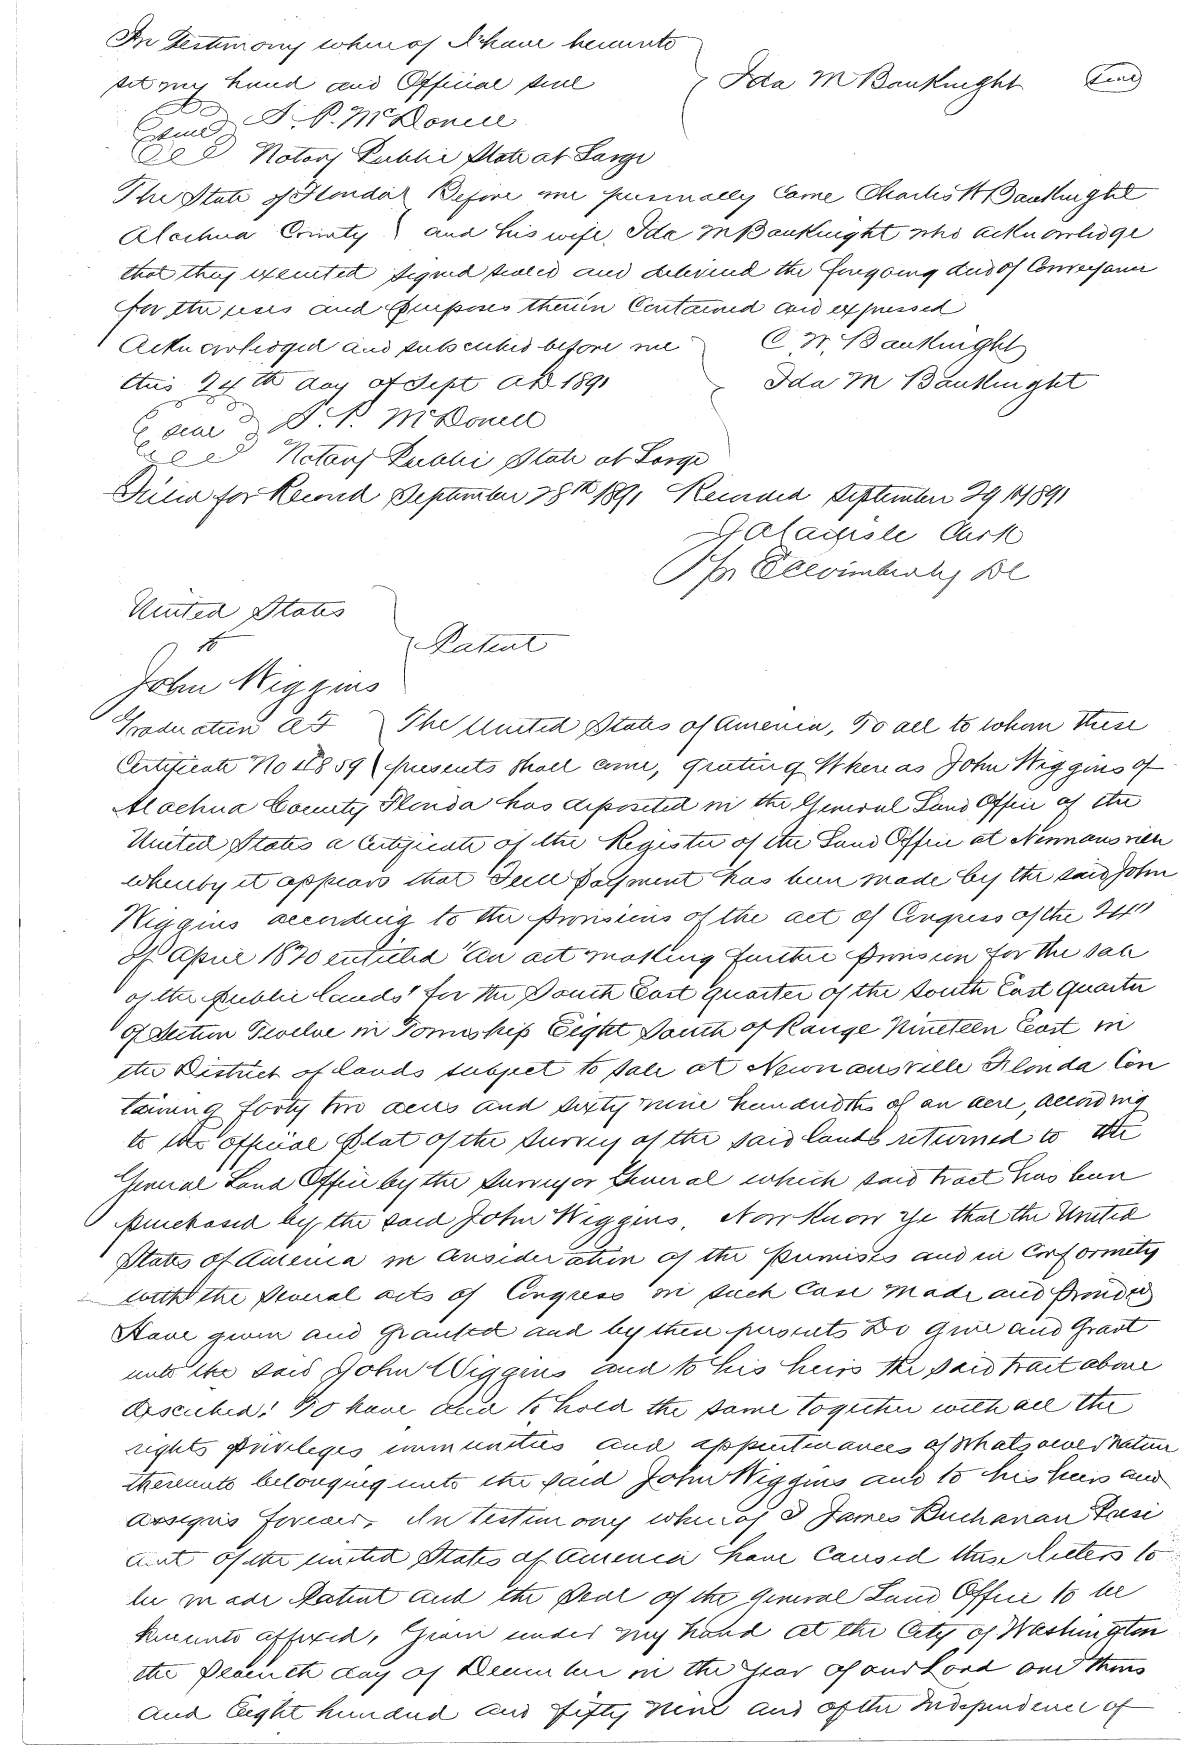 In Testimony where of I have hereunto
set my hand and Official seal Ida M Bauknight Seal
Seal S. P. McDonell
Notary Public State at Large
The State of Florida Before me personally Came Charles W Bauknight
Alachua County and his wife Ida M Bauknight who acknowledge
that they executed signed sealed and delivered the foregoing deed of Conveyance
for the uses and purposes therein Contained and expressed
Acknowledged and subscribed before me C. W. Bauknight
this 24th day of Sept AD 1891 Ida M Bauknight
Seal S. P. McDonell
Notary Public State at Large
Filed for Record September 28th 1891 Recorded September 29th 1891
Clerk
Pr DC
United States
to Patent
John Wiggins
Graduation The United States of America, To all to whom these
Certificate No presents shall come, greeting Where as John Wiggins of
Alachua County Florida has deposited in the General Land Office of the
United States a Certificate of the Register of the Land Office at Newnansville
whereby it appears that Full Payment has been made by the said John
Wiggins according to the provisions of the act of Congress of the 24th
of April 1820 entitled "An act making further provision for the sale
of the public lands" for the South East quarter of the South East quarter
of Section Twelve in Township Eight South of Range Nineteen East in
the District of lands subject to sale at Newnansville Florida Con
taining forty two acres and sixty nine hundredths of an acre, according
to the official plat of the survey of the said lands returned to the
General Land Office by the Surveyor General which said tract has been
purchased by the said John Wiggins. Now Know Ye that the United
States of America in Consideration of the premises and in Conformity
with the several acts of Congress in such case made and provided
Have given and granted and by these presents Do give and Grant
unto the said John Wiggins and to his heirs the said tract above
described: To have and to hold the same together with all the
rights privileges immunities and appurtenances of whatsoever nature
thereunto belonging unto the said John Wiggins and to his heirs and
assigns forever. In testimony where of I James Buchanan Presi
dent of the united States of America have caused these letters to
be made Patent and the Seal of the General Land Office to be
hereunto affixed. Given under my hand at the City of Washington
the day of December in the Year of our Lord one thous
and Eight hundred and fifty nine and of the Independence of